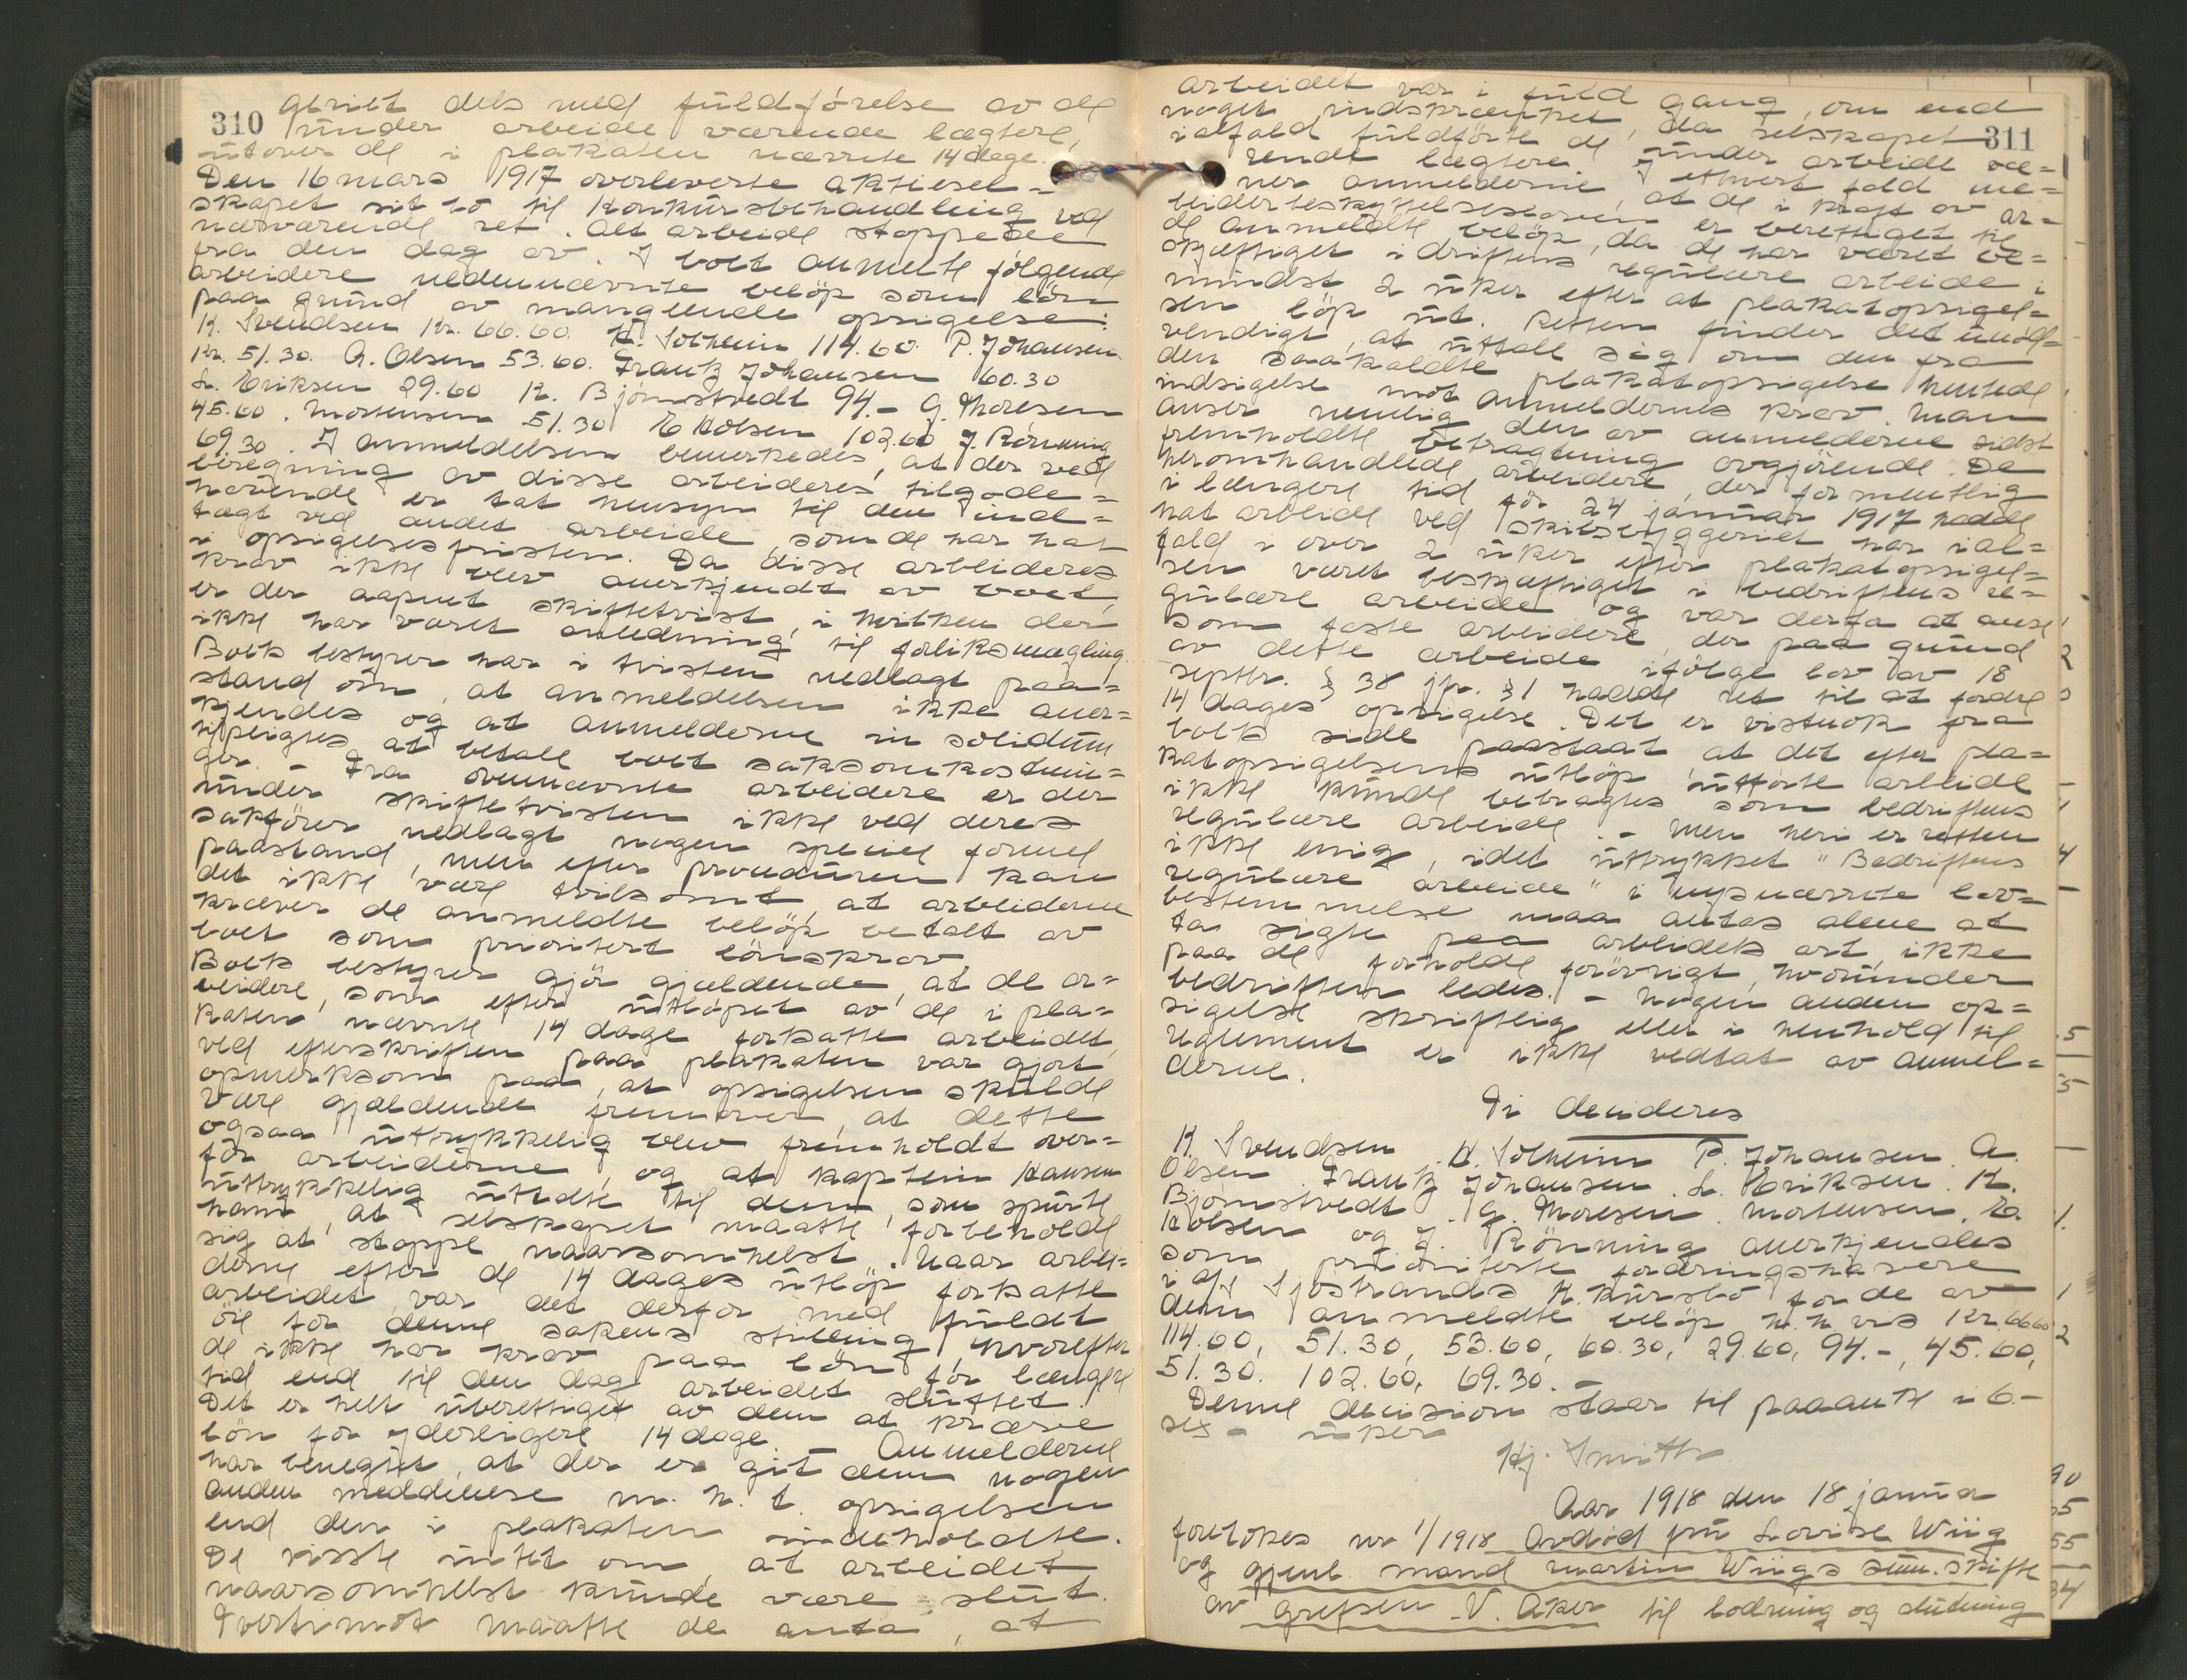 310
geriet dels med fuldförelse av de
under arbeide værende lægtere,
utover de i plakaten nævnte 14 dage.
Den 16 mars 1917 overleverte aktiesel-
skapet sit bo til konkursbehandling ved
nærværende ret. Alt arbeide stoppedes
fra den dag av. I boet anmeldte følgende
arbeidere nedennævnte beløp som løn
paa grund av manglende opsigelse:
K. Svendsen kr. 66.60. K. Solheim 114.60. P. Johansen
kr. 51.30. A. Olsen 53.60. Frantz Johansen 60.30
L. Eriksen 29.60 K. Bjørnstvedt 94.- G. Thoresen
45.60. Mortensen 51.30 E Holsen 102.60 J. Rönning
69.30. I anmeldelsen bemerkedes, at der ved
beregning av disse arbeideres tilgode-
havende er tat hensyn til den ind-
tægt ved andet arbeide, som de har hat
i opsigelsesfristen. Da disse arbeideres
krav ikke blev anerkjendt av boet,
er der aapnet skiftetvist, i hvilken der
ikke har været anledning til forliksmægling.
Boets bestyrer har i tvisten nedlagt paa-
stand om, at anmeldelsen ikke aner-
kjendes og at anmelderne in solidum
tilpligtes at betale boet saksomkostnin-
ger. - Fra ovennævnte arbeidere er der
under skiftetvisten ikke ved deres
sakfører nedlagt nogen speciel formel
paastand, men efter proceduren kan
det ikke være tvilsomt, at arbeiderne
kræver de anmeldte beløp betalt av
boet som prioritert lønskrav.
Boets bestyrer gjør gjældende, at de ar-
beidere, som efter utløpet av de i pla-
katen nævnte 14 dage fortsatte arbeidet,
ved efterskriften paa plakaten var gjort
opmerksom paa, at opsigelsen skulde
være gjældende fremover, at dette
ogsaa uttrykkelig blev fremholdt over-
for arbeiderne, og at kaptein Hansen
uttrykkelig uttalte til dem, som spurte
ham, at selskapet maatte forbeholde
sig at stoppe naarsomhelst. Naar arbei-
derne efter de 14 dages utløp fortsatte
arbeidet, var det derfor med fuldt
öie for denne sakens stilling, hvorefter
de ikke har krav paa løn for længere
tid end til den dag arbeidet sluttet.
Det er helt uberettiget av dem at kræve
løn for yderligere 14 dage. - Anmelderne
har benegtet, at der er git dem nogen
anden meddelelse m. h. t. opsigelsen
end den i plakaten indeholdte.
De visste intet om, at arbeidet
naarsomhelst kunde være slut.
Tvertimot maatte de anta, at
311
arbeidet var i fuld gang, om end
noget indskrænket, da selskapet
ialfald fuldførte de under arbeide væ-
rende lægtere. I ethvert fald me-
ner anmelderne, at de i kraft av ar-
beiderbeskyttelsesloven er berettiget til
de anmeldte beløp, da de har været be-
skjæftiget i driftens regulære arbeide i
mindst 2 uker efter at plakatopsigel-
sen løp ut. Retten finder det unød-
vendigt, at uttale sig om den fra
den saakaldte plakatopsigelse hentede
indsigelse mot anmeldernes krav. Man
anser nemlig den av anmelderne sidst
fremholdte betragtning avgjørende. De
heromhandlede arbeidere, der formentlig
i længere tid før 24 januar 1917 hadde
hat arbeide ved skibsbyggeriet har ial-
fald i over 2 uker efter plakatopsigel-
sen været beskjæftiget i bedriftens re-
gulære arbeide og var derfor at anse
som faste arbeidere, der paa grund
av dette arbeide ifølge lov av 18
septbr. § 38 jfr. § 1 hadde ret til at fordre
14 dages opsigelse. Det er vistnok fra
boets side paastaat at det efter pla-
katopsigelsens utløp utførte arbeide
ikke kunde betragtes som bedriftens
regulære arbeide. - Men heri er retten
ikke enig, idet uttrykket "Bedriftens
regulære arbeide" i nysnævnte lov-
bestemmelse maa antas alene at
ta sigte paa arbeidets art, ikke
paa de forholde forøvrigt, hvorunder
bedriften ledes. - Nogen anden op-
sigelse skriftlig eller i henhold til
reglement er ikke vedtat av anmel-
derne.
Ti decideres
K. Svendsen. K. Solheim P. Johansen. A.
Olsen. Frantz Johansen. L. Eriksen. K.
Bjørnstvedt. G. Thoresen. Mortensen. E.
Holsen og J. Rönning anerkjendes
som prioriterte fordringshavere
i A/S Sjøstrands K.kursbo for de av
dem anmeldte beløp h.h.vis kr. 66.60
114.60, 51.30, 53.60, 60.30, 29.60, 94.-, 45.60,
51.30. 102.60, 69.30. -
Denne decision staar til paaanke i 6-
sex - uker
Hj. Smith
Aar 1918 den 18 januar
foretokes nr 1/1918 Avdød fru Lovise Wiig
og gjenl. mand Martin Wiigs sam. skifte
av Grefsen V. Aker til lodning og slutning